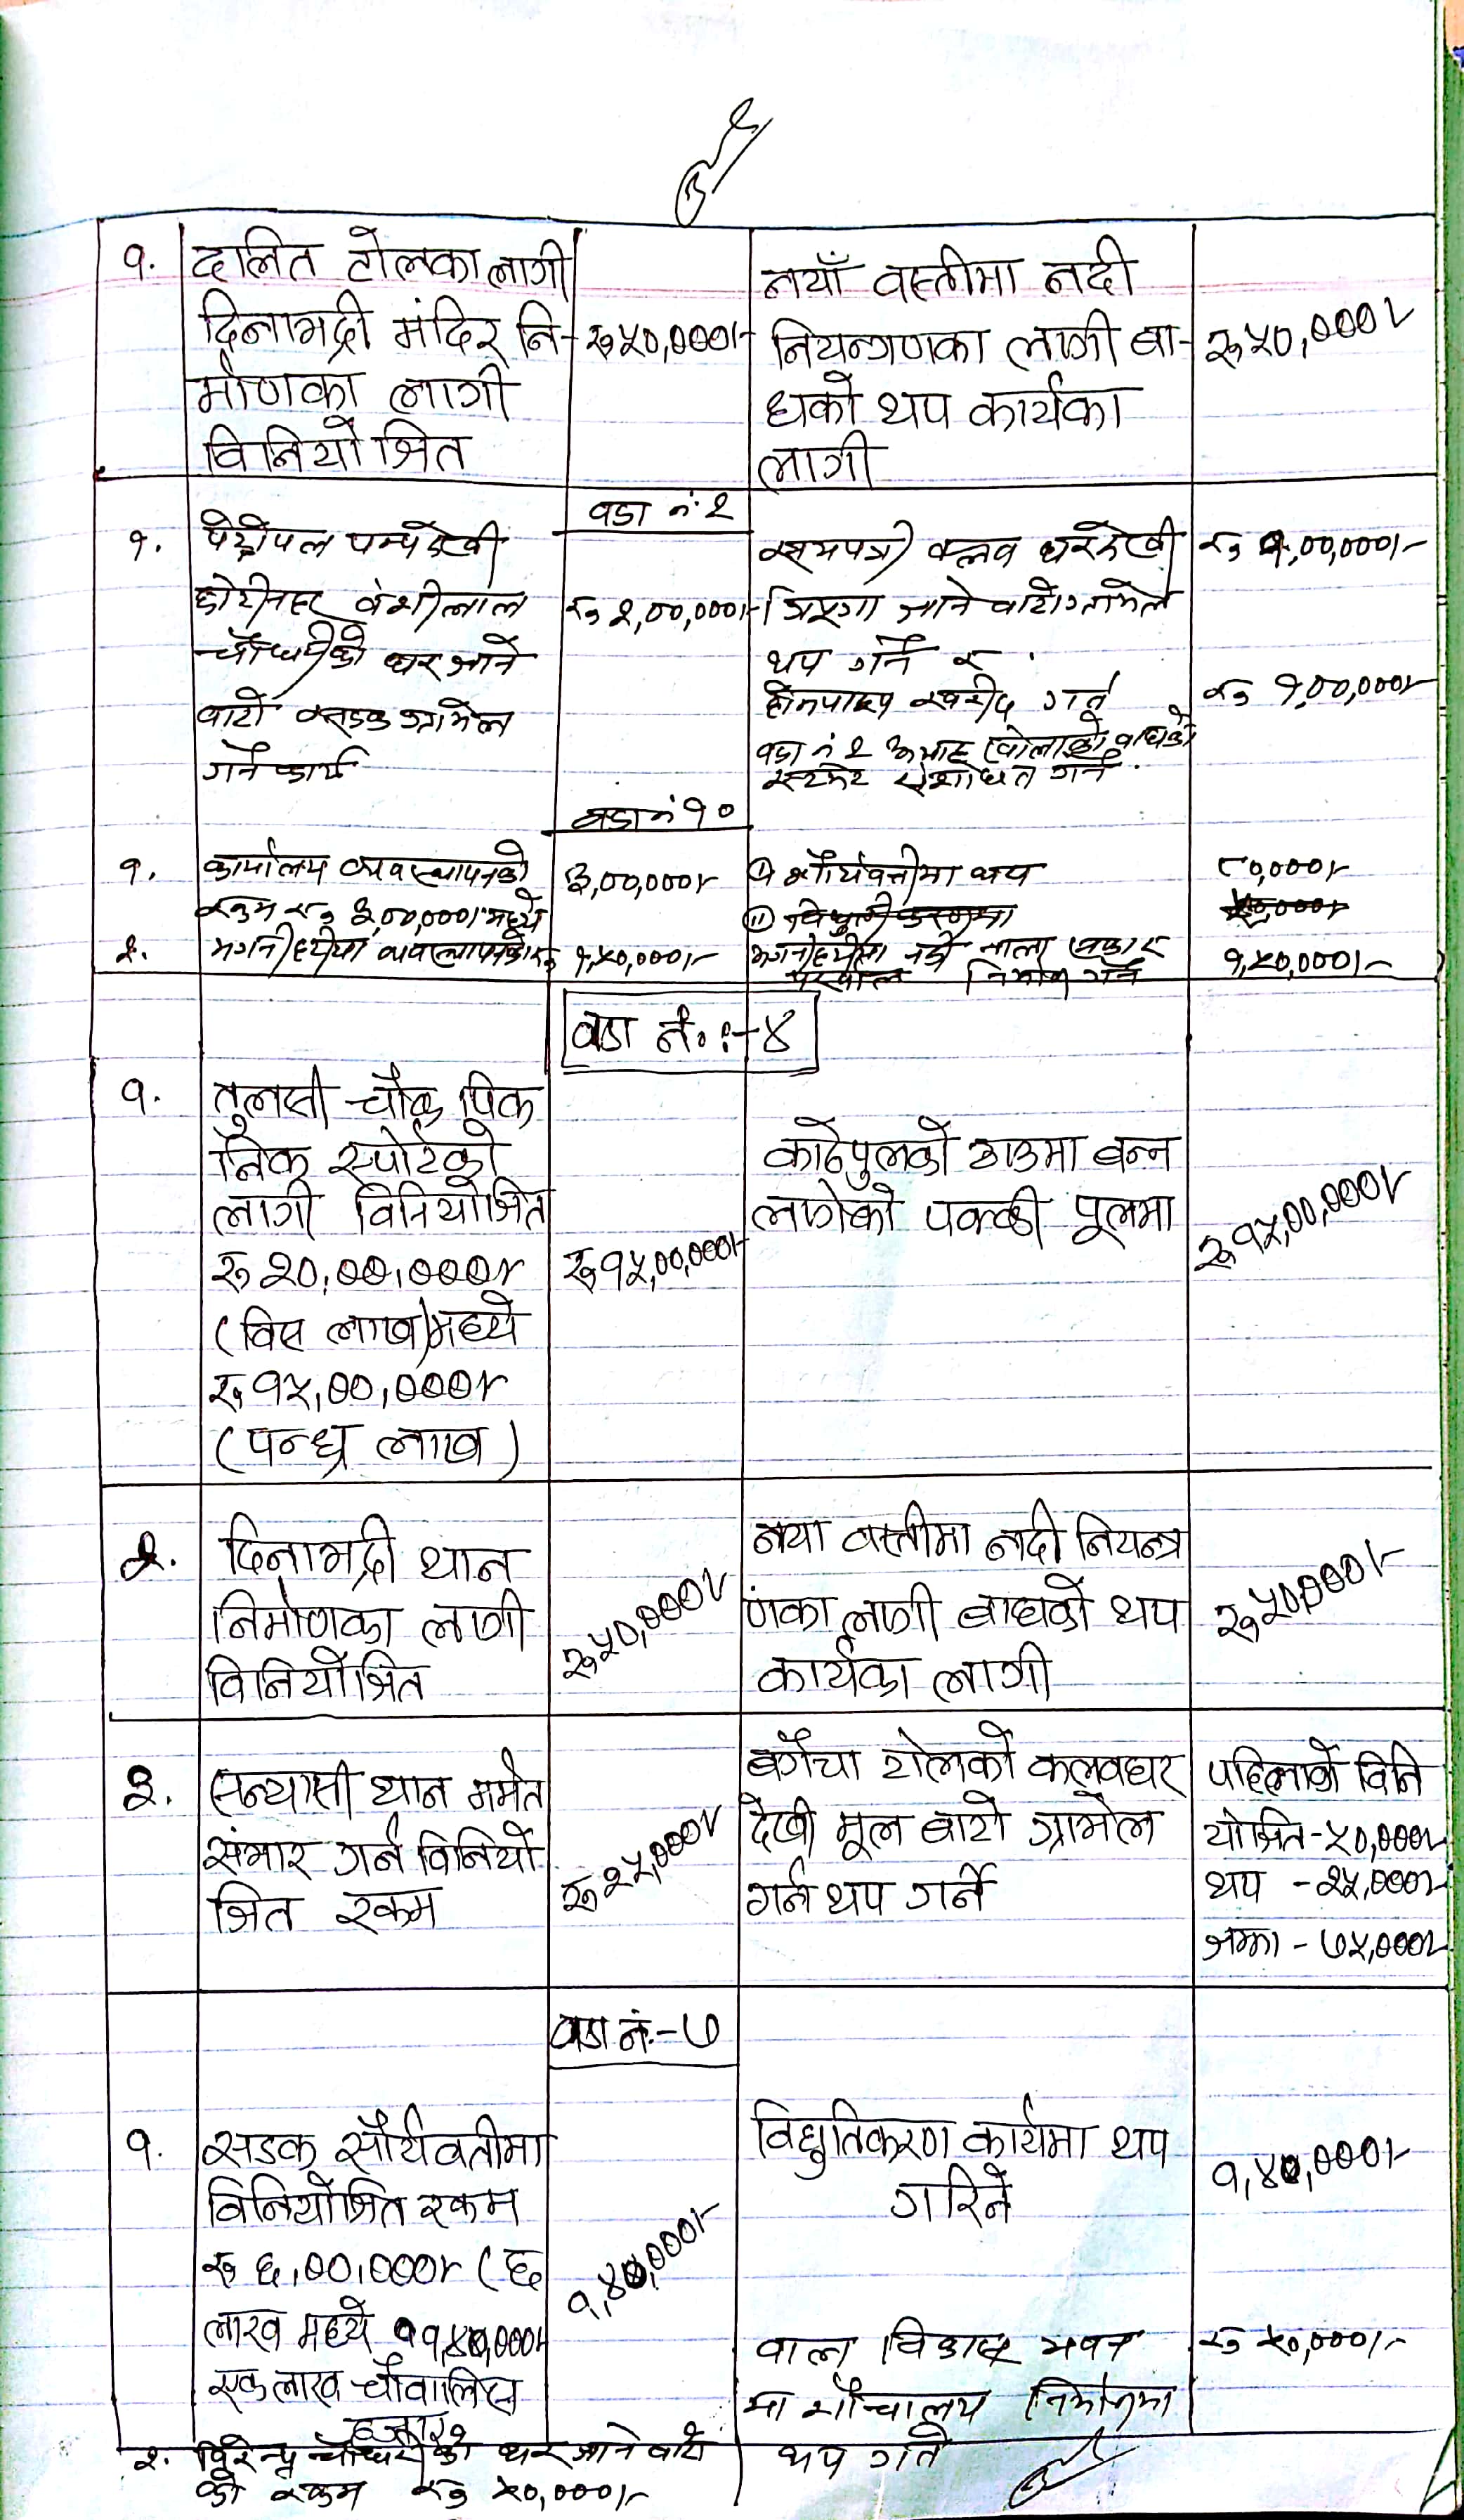 १. दलित टोलका लागी
दिनाभद्री मंदिर नि- रु ५०,०००।-
र्माणका लागी
विनियोजित
नयाँ वस्तीमा नदी
नियन्त्रणका लागी बा- रु ५०,०००।-
धको थप कार्यका
लागी
वडा नं. २
१. पेट्रोपल पम्पदेखी
छोटीनहर वंशीलाल रु २,००,०००।-
चौधरीको घर जाने
वाटो सडक ग्राभेल
गर्ने कार्य
क्लव घरदेखी रु १,००,०००।-
जाने वाटो ग्राभेल
थप गर्ने र
ह्रीमपाइप खरीद गर्न रु १,००,०००।-
वडा नं २ खोलाको वाधको
संशोधन गर्ने.
वडा नं १०
१. कार्यालय व्यवस्थापनको ३,००,०००।-
रकम रु ३,००,०००। मध्ये
(i) सौर्यवत्तीमा थप ८०,०००।-
(ii) ५०,०००।-
२. व्यवस्थापनको रु १,५०,०००।-
नाला निर्माण गर्ने १,५०,०००।-
वडा नं. :- ४
१. तुलसी चौक पिक
निक स्पोर्टको
लागी विनियोजित
रु २०,००,०००।- रु १५,००,०००।-
(विस लाख) मध्ये
रु १५,००,०००।-
(पन्ध्र लाख)
काठेपुलको ठाउमा बन्न
लागेको पक्की पूलमा रु १५,००,०००।-
२. दिनाभद्री थान
निर्माणका लागी रु ५०,०००।-
विनियोजित
नया वस्तीमा नदी नियन्त्र
णका लागी बाधको थप रु ५०,०००।-
कार्यका लागी
३. सन्यासी थान मर्मत
संभार गर्न विनियो रु २५,०००।-
जित रकम
बगैंचा टोलको कलवघर
देखी मूल बाटो ग्राभेल
गर्न थप गर्ने
पहिलाको विनि
योजित - ५०,०००।-
थप - २५,०००।-
जम्मा - ७५,०००।-
वडा नं.- ७
१. सडक सौर्यवतीमा
विनियोजित रकम
रु ६,००,०००।- (छ
लाख मध्ये
एक लाख चौवालिस
हजार
विधुतिकरण कार्यमा थप
गरिने
वाल विकास भवन रु ५०,०००।-
मा शौचालय निर्माणमा
थप गर्ने
२. विरेन्द्र चौधरीको घर जाने वाटो
को रकम रु ५०,०००।-